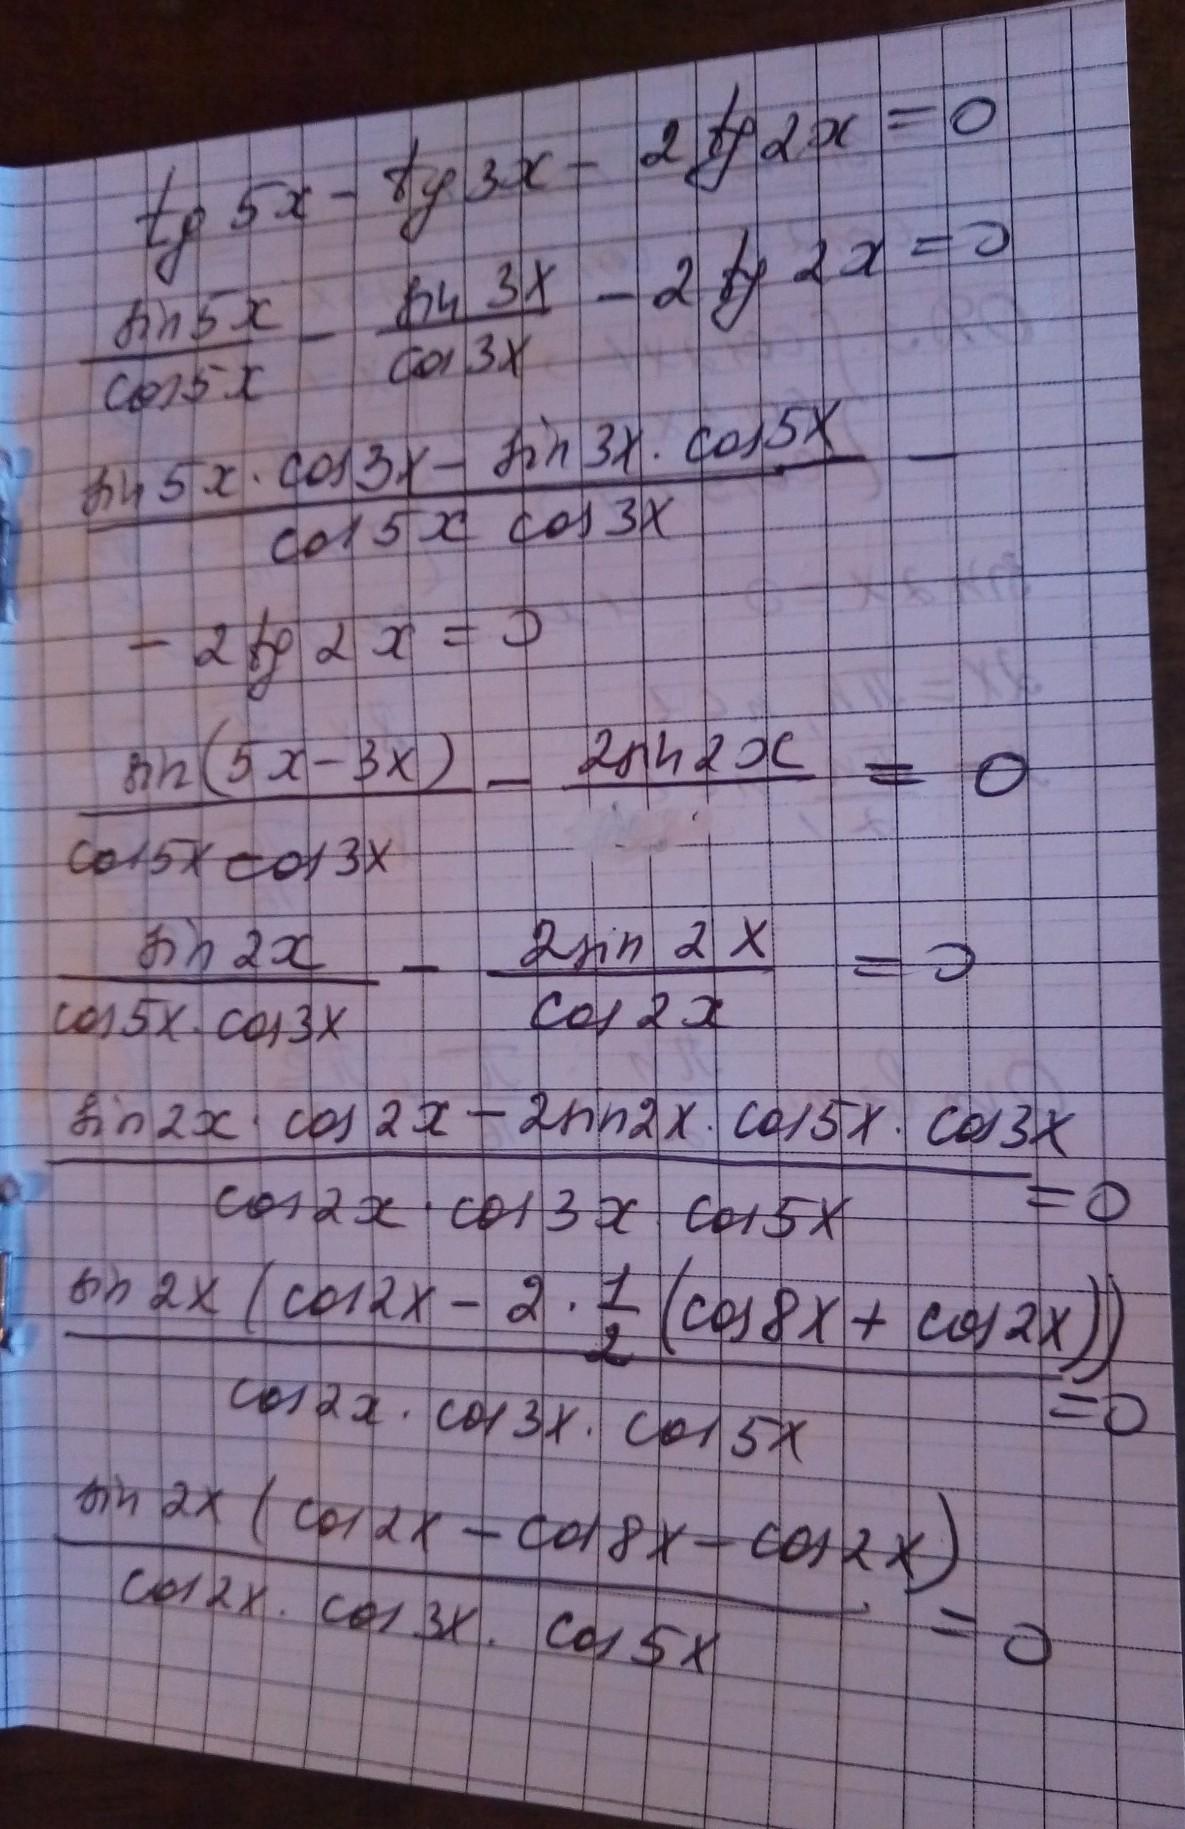 tg 5x - tg 3x - 2 tg 2x = 0
sin 5x / cos 5x - sin 3x / cos 3x - 2 tg 2x = 0
(sin 5x · cos 3x - sin 3x · cos 5x) / (cos 5x cos 3x) -
- 2 tg 2x = 0
sin(5x - 3x) / (cos 5x cos 3x) - 2 sin 2x / = 0
sin 2x / (cos 5x · cos 3x) - 2 sin 2x / cos 2x = 0
(sin 2x · cos 2x - 2 sin 2x · cos 5x · cos 3x) / (cos 2x · cos 3x · cos 5x) = 0
sin 2x (cos 2x - 2 · 1/2 (cos 8x + cos 2x)) / (cos 2x · cos 3x · cos 5x) = 0
sin 2x (cos 2x - cos 8x - cos 2x) / (cos 2x · cos 3x · cos 5x) = 0